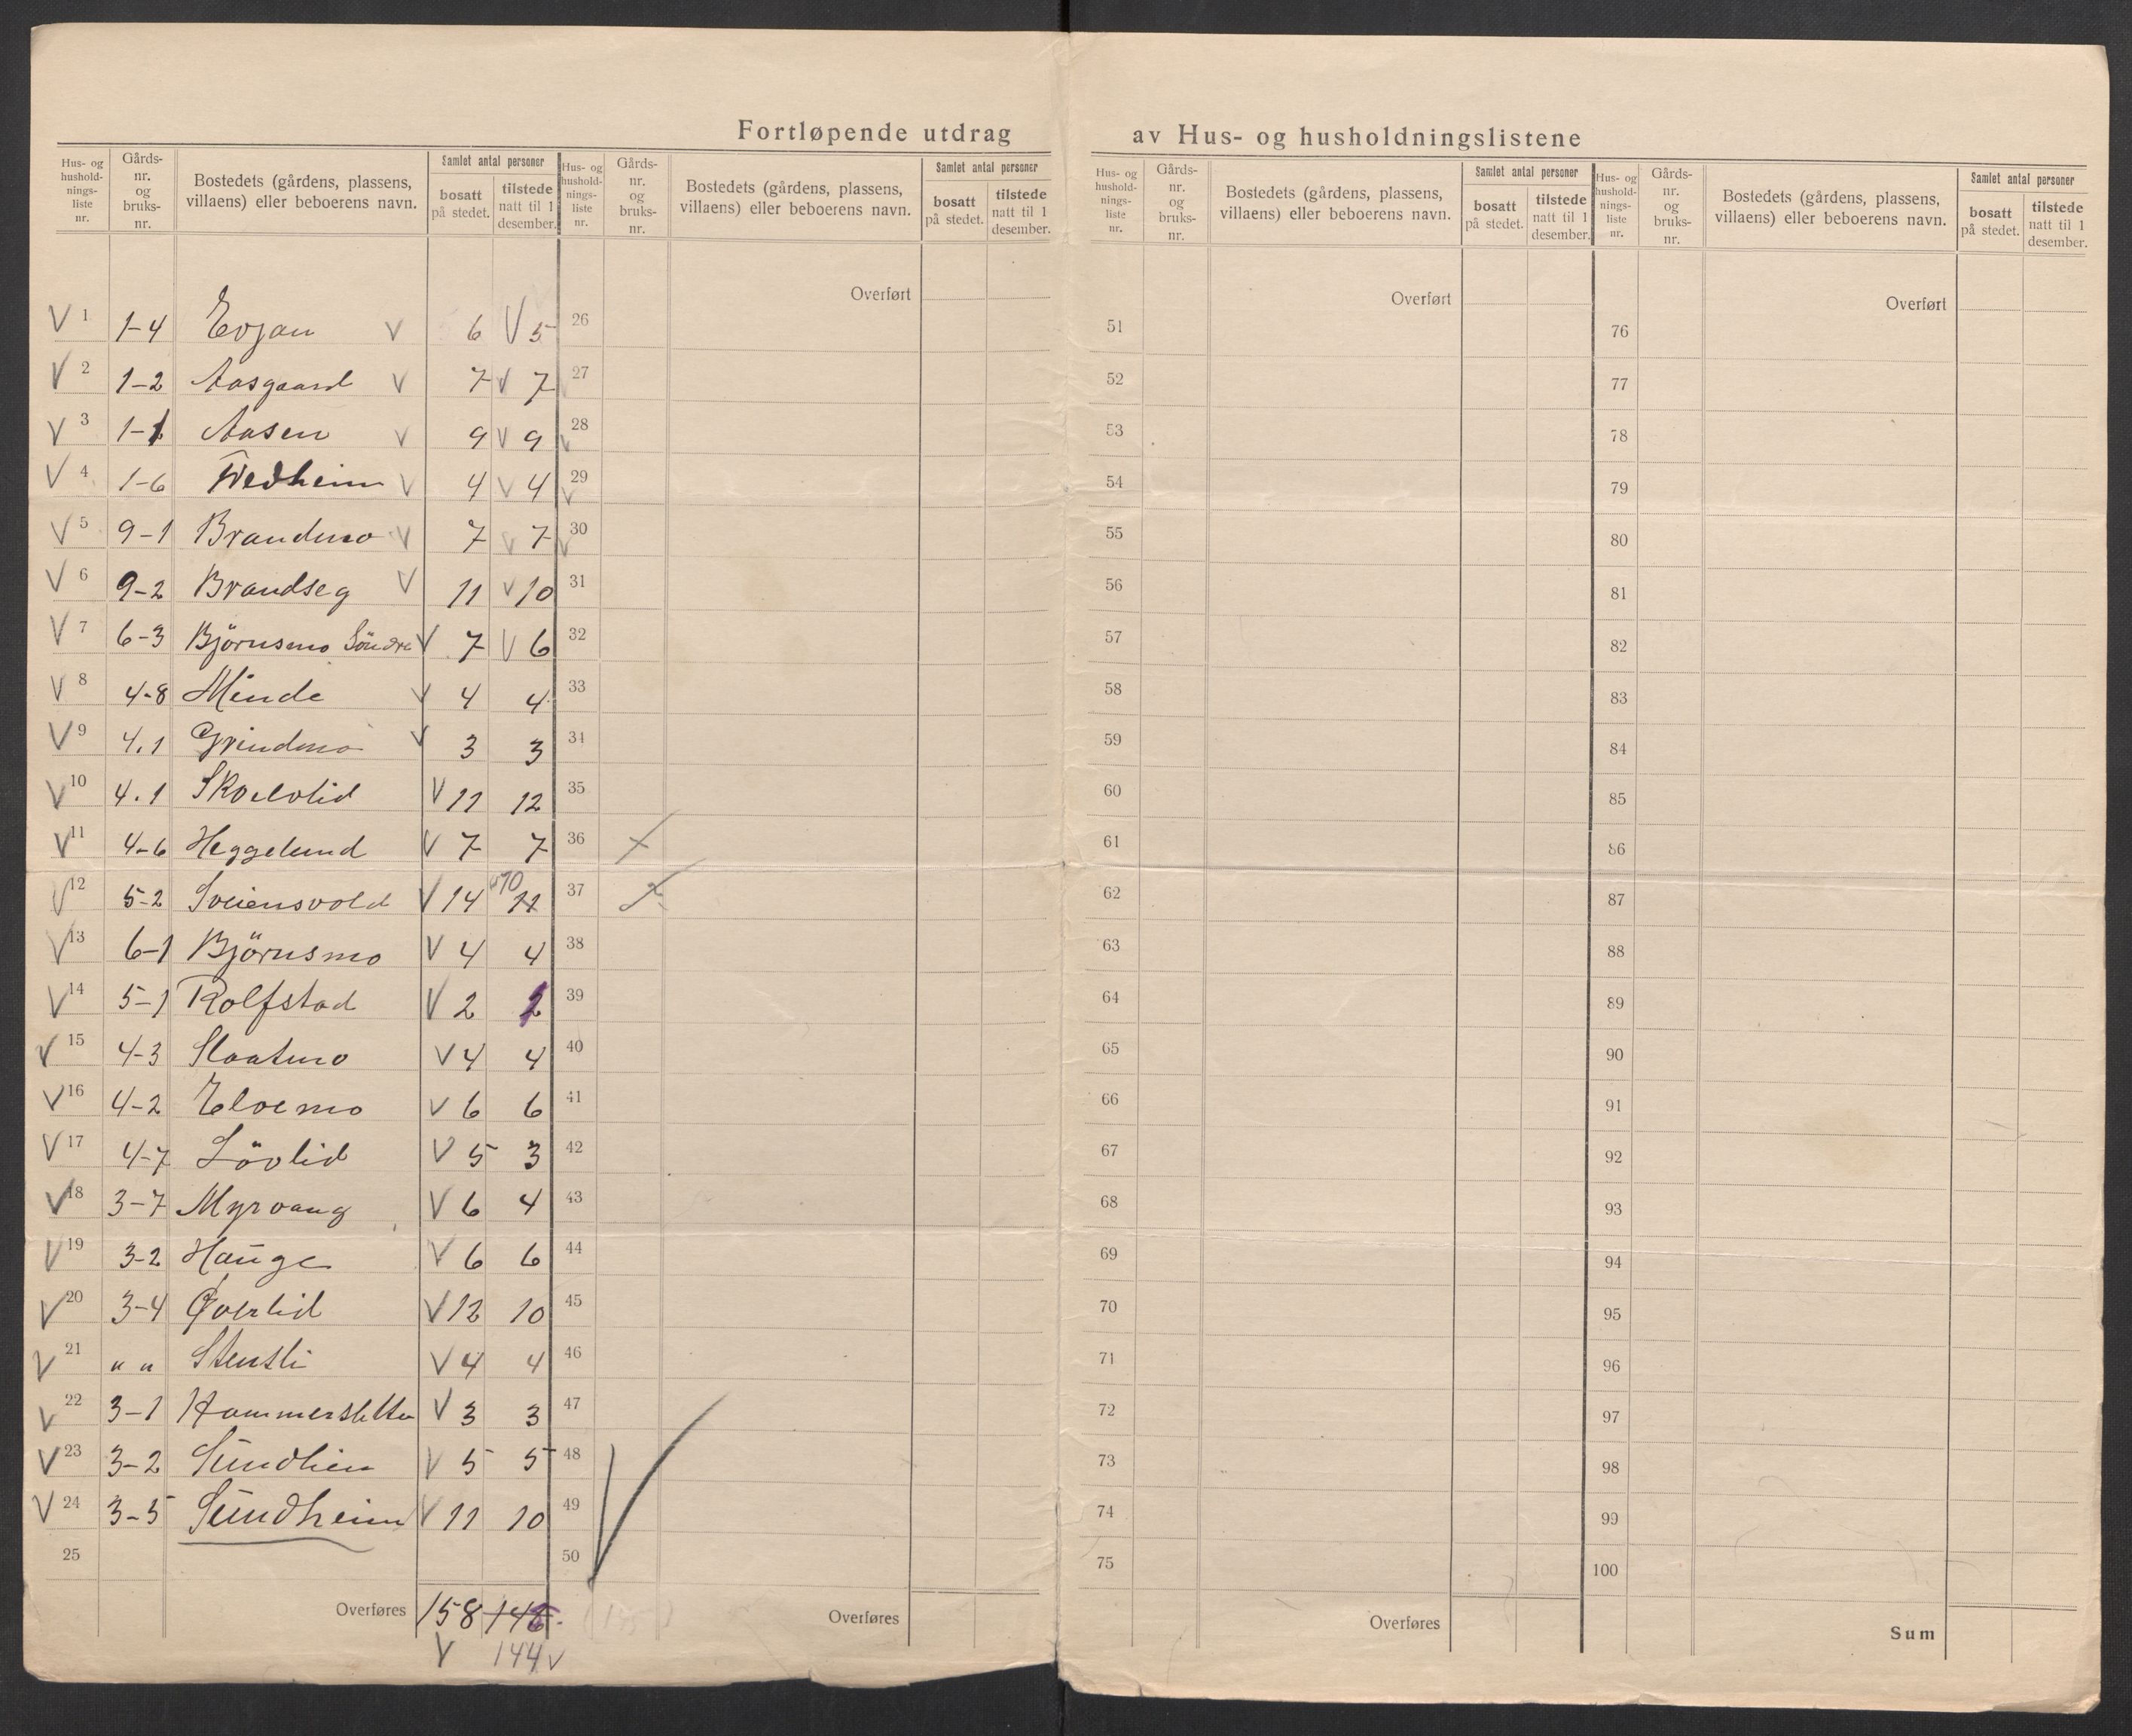 Fortløpende utdrag av Hus- og husholdningslistene
Hus- og hushold-nings-liste nr. | Gårds-nr. og bruks-nr. | Bostedets (gårdens, plassens, villaens) eller beboerens navn. | Samlet antal personer | bosatt på stedet. | tilstede natt til 1 desember.
V 1 1-4 Evjan V 6 V 5
V 2 1-2 Aasgaard V 7 V 7
V 3 1-1 Aasen V 9 V 9
V 4 1-6 V 4 V 4
V 5 9-1 Brandmo V 7 V 7
V 6 9-2 Brandseg V 11 V 10
V 7 6-3 Björnsmo Söndre V 7 V 6
V 8 4-8 Minde V 4 4
V 9 4.1 Grindmo V 3 3
V 10 4.1 V 11 12
V 11 4-6 Heggelund V 7 7
V 12 5-2 Sveiensvold V 14 10 11
V 13 6-1 Björnsmo V 4 4
V 14 5-1 Rolfstad V 2 2
V 15 4-3 Slaatmo V 4 4
V 16 4-2 Elvemo V 6 6
V 17 4-7 Lövlid V 5 3
V 18 3-7 Myrvang V 6 4
V 19 3-2 Hauge V 6 6
V 20 3-4 Øverlid V 12 10
V 21 " " Stensli V 4 4
V 22 3-1 Hammersletten V 3 3
V 23 3-2 Sundhein V 5 5
V 24 3-5 Sundheim V 11 10
25
Overføres 158 146
V 144 V
Hus- og hushold-nings-liste nr. | Gårds-nr. og bruks-nr. | Bostedets (gårdens, plassens, villaens) eller beboerens navn. | Samlet antal personer | bosatt på stedet. | tilstede natt til 1 desember.
Overført
26
27
28
29
30
31
32
33
34
35
36
37
38
39
40
41
42
43
44
45
46
47
48
49
50
Overføres
Hus- og hushold-nings-liste nr. | Gårds-nr. og bruks-nr. | Bostedets (gårdens, plassens, villaens) eller beboerens navn. | Samlet antal personer | bosatt på stedet. | tilstede natt til 1 desember.
Overført
51
52
53
54
55
56
57
58
59
60
61
62
63
64
65
66
67
68
69
70
71
72
73
74
75
Overføres
Hus- og hushold-nings-liste nr. | Gårds-nr. og bruks-nr. | Bostedets (gårdens, plassens, villaens) eller beboerens navn. | Samlet antal personer | bosatt på stedet. | tilstede natt til 1 desember.
Overført
76
77
78
79
80
81
82
83
84
85
86
87
88
89
90
91
92
93
94
95
96
97
98
99
100
Sum